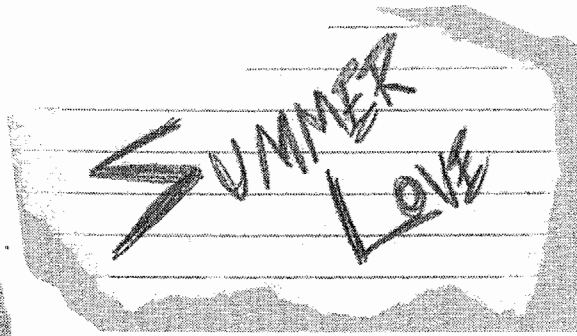 SUMMER
LOVE